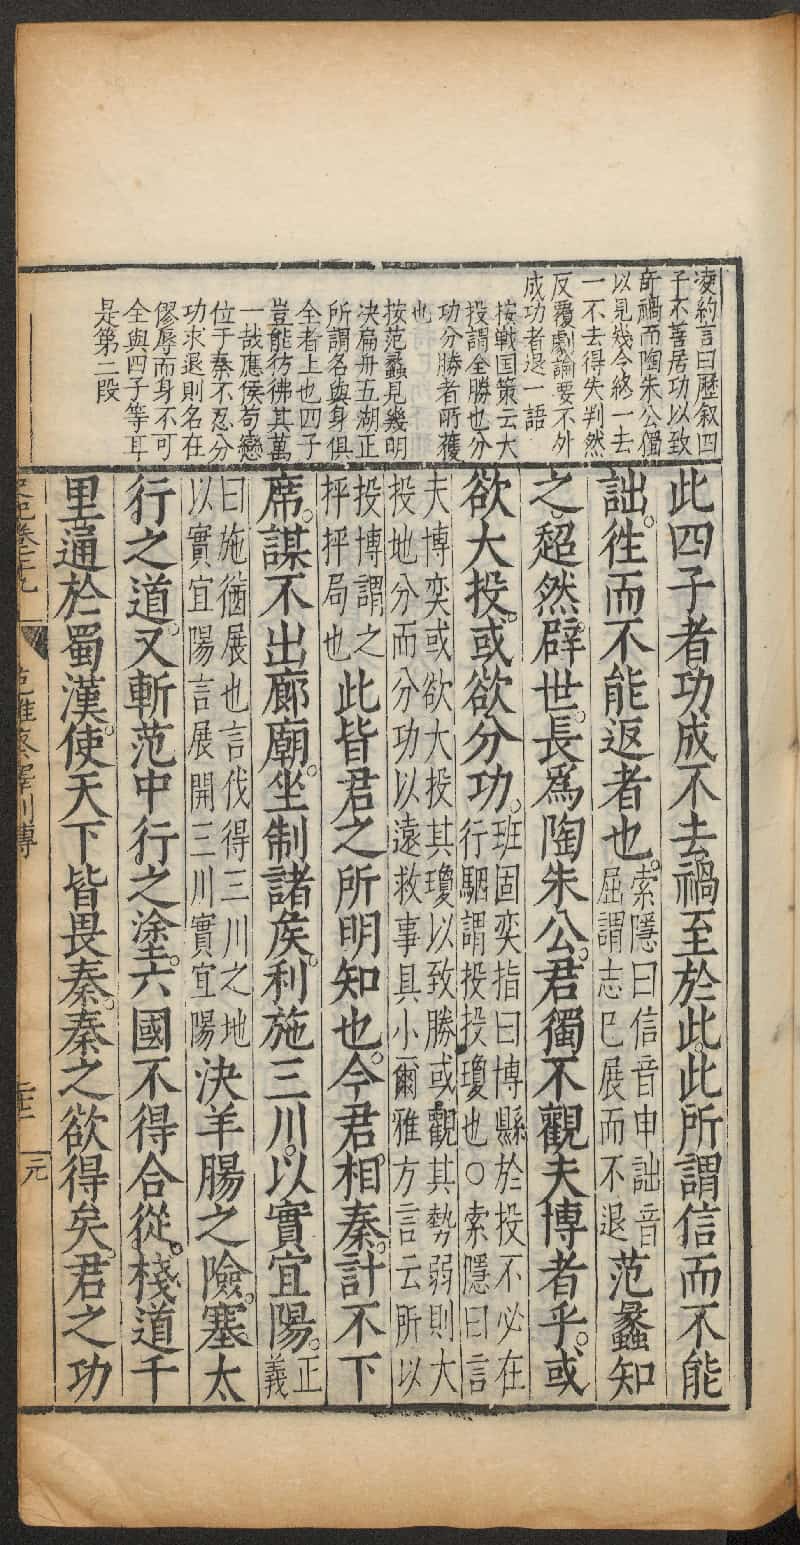 凌約言曰歷叙四
子不善居功以致
奇禍而陶朱公獨
以見幾令終一去
一不去得失判然
反覆劇論要不外
成功者退一語
按戰国策云大
投謂全勝也分
功分勝者所獲
也
按范蠡見幾明
决扁舟五湖正
所謂名與身俱
全者上也四子
豈能彷彿其萬
一哉應侯苟戀
位于秦不忍分
功求退則名在
僇辱而身不可
全與四子等耳
是第二段
此四子者功成不去禍至於此此所謂信而不能
詘徃而不能返者也。索隱曰信音申詘音
屈謂志已展而不退范蠡知
之超然辟世長爲陶朱公。君獨不觀夫博者乎。或
欲大投。或欲分功。班固奕指曰博縣於投不必在
行駰謂投投瓊也○索隱曰言
夫博奕或欲大投其瓊以致勝或觀其勢弱則大
投地分而分功以遠救事具小爾雅方言云所以
投博謂之
抨抨局也此皆君之所明知也。今君相秦。計不下
席。謀不出廊廟。坐制諸矦。利施三川。以實宜陽。正
義
曰施猶展也言伐得三川之地
以實宜陽言展開三川實宜陽決羊腸之險。塞太
行之道。又斬范中行之塗。六國不得合從。棧道千
里。通於蜀漢。使天下皆畏秦。秦之欲得矣。君之功